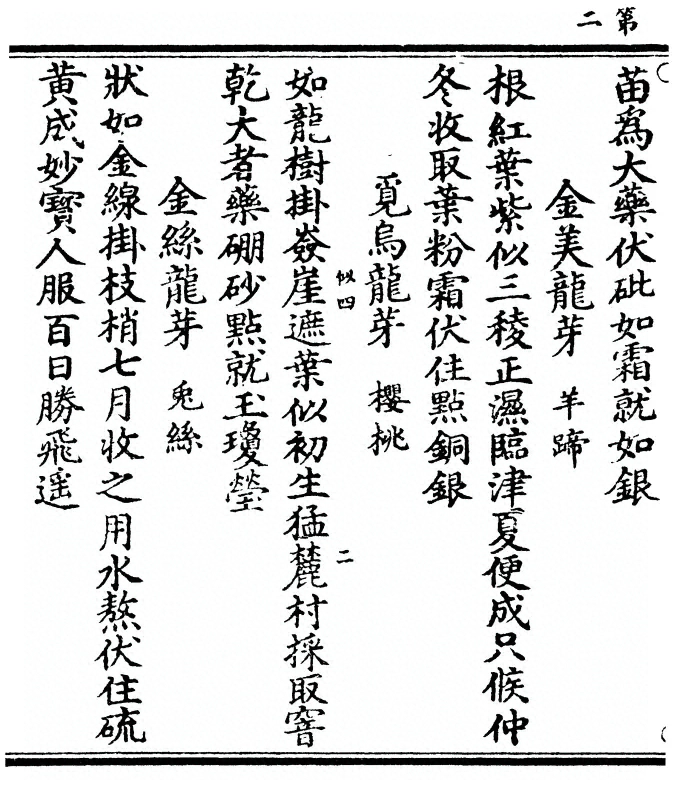 第二
苗爲大藥伏砒如霜就如銀
金美龍芽 羊蹄
根紅葉紫似三稜正濕臨津夏便成只候仲
冬收取葉粉霜伏住點銅銀
覓烏龍芽 櫻桃
似四 二
如龍樹掛㟁崖遮葉似初生猛麓村採取窨
乾大者藥硼砂點就玉瓊瑩
金絲龍芽 兎絲
狀如金線掛枝梢七月收之用水熬伏住硫
黃成妙寶人服百日勝飛遥